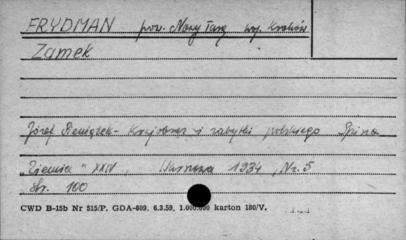 FRYDMAN pow. Nowy Targ woj. Kraków
Zamek
Józef Pieniążek - Krajobraz i zabytki polskiego Spisza
"Ziemia" XXIV, Warszawa 1934, Nr. 5
str. 100
CWD B-15b Nr 515/P. GDA-609. 6.3.59. 1.000.000 karton 180/V.